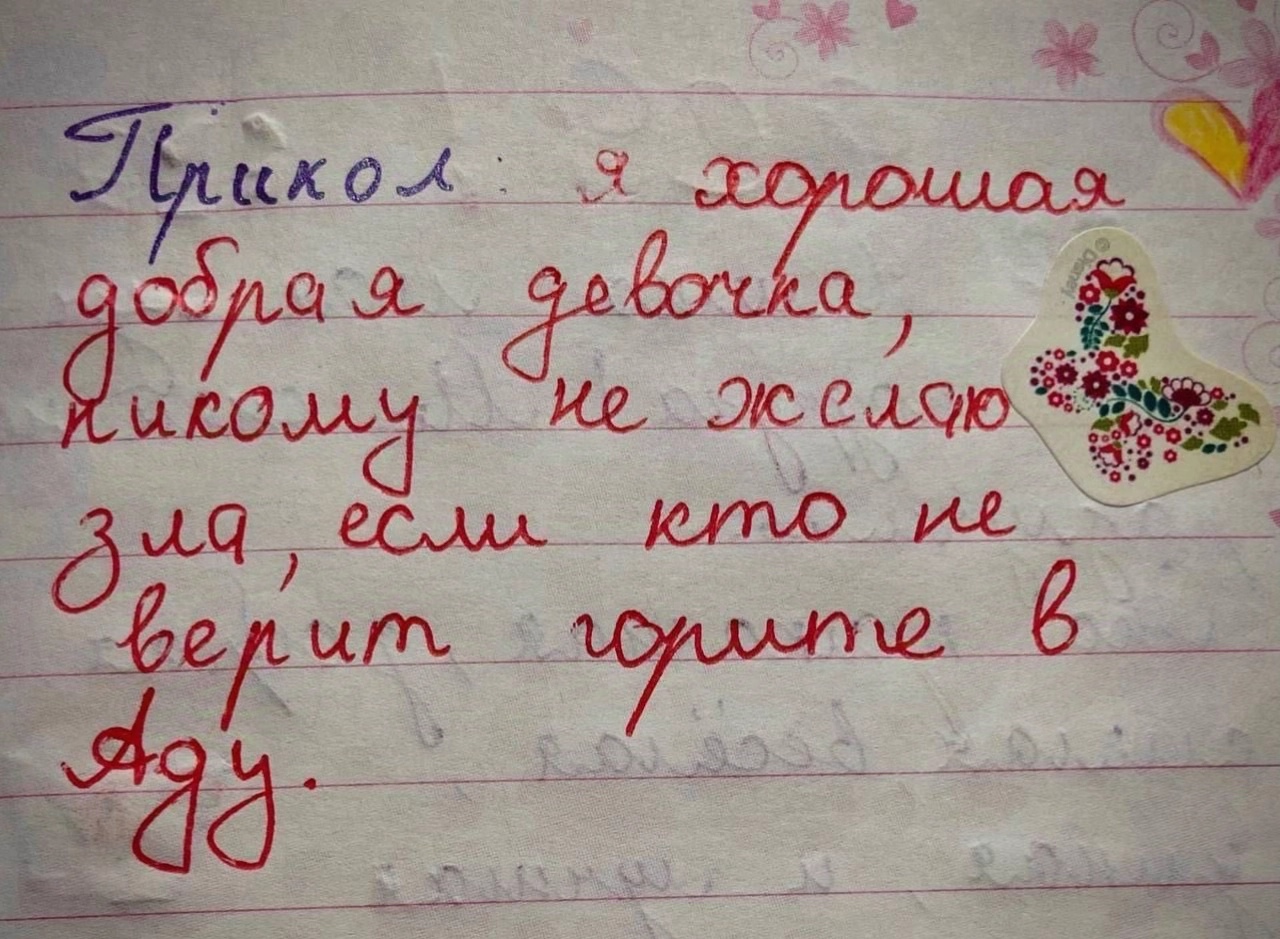 Прикол: я хорошая
добрая девочка,
никому не желаю
зла, если кто не
верит горите в
Аду.